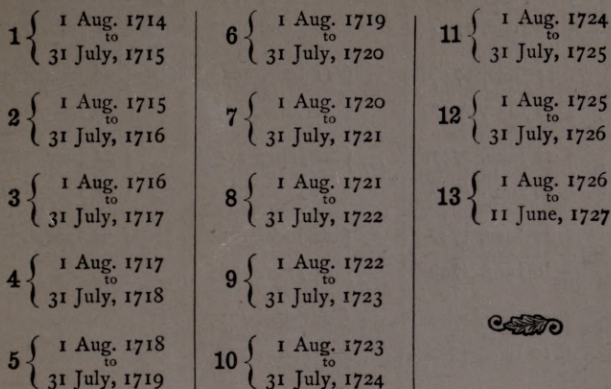 1 { 1 Aug. 1714
to
31 July, 1715
2 { 1 Aug. 1715
to
31 July, 1716
3 { 1 Aug. 1716
to
31 July, 1717
4 { 1 Aug. 1717
to
31 July, 1718
5 { 1 Aug. 1718
to
31 July, 1719
6 { 1 Aug. 1719
to
31 July, 1720
7 { 1 Aug. 1720
to
31 July, 1721
8 { 1 Aug. 1721
to
31 July, 1722
9 { 1 Aug. 1722
to
31 July, 1723
10 { 1 Aug. 1723
to
31 July, 1724
11 { 1 Aug. 1724
to
31 July, 1725
12 { 1 Aug. 1725
to
31 July, 1726
13 { 1 Aug. 1726
to
11 June, 1727